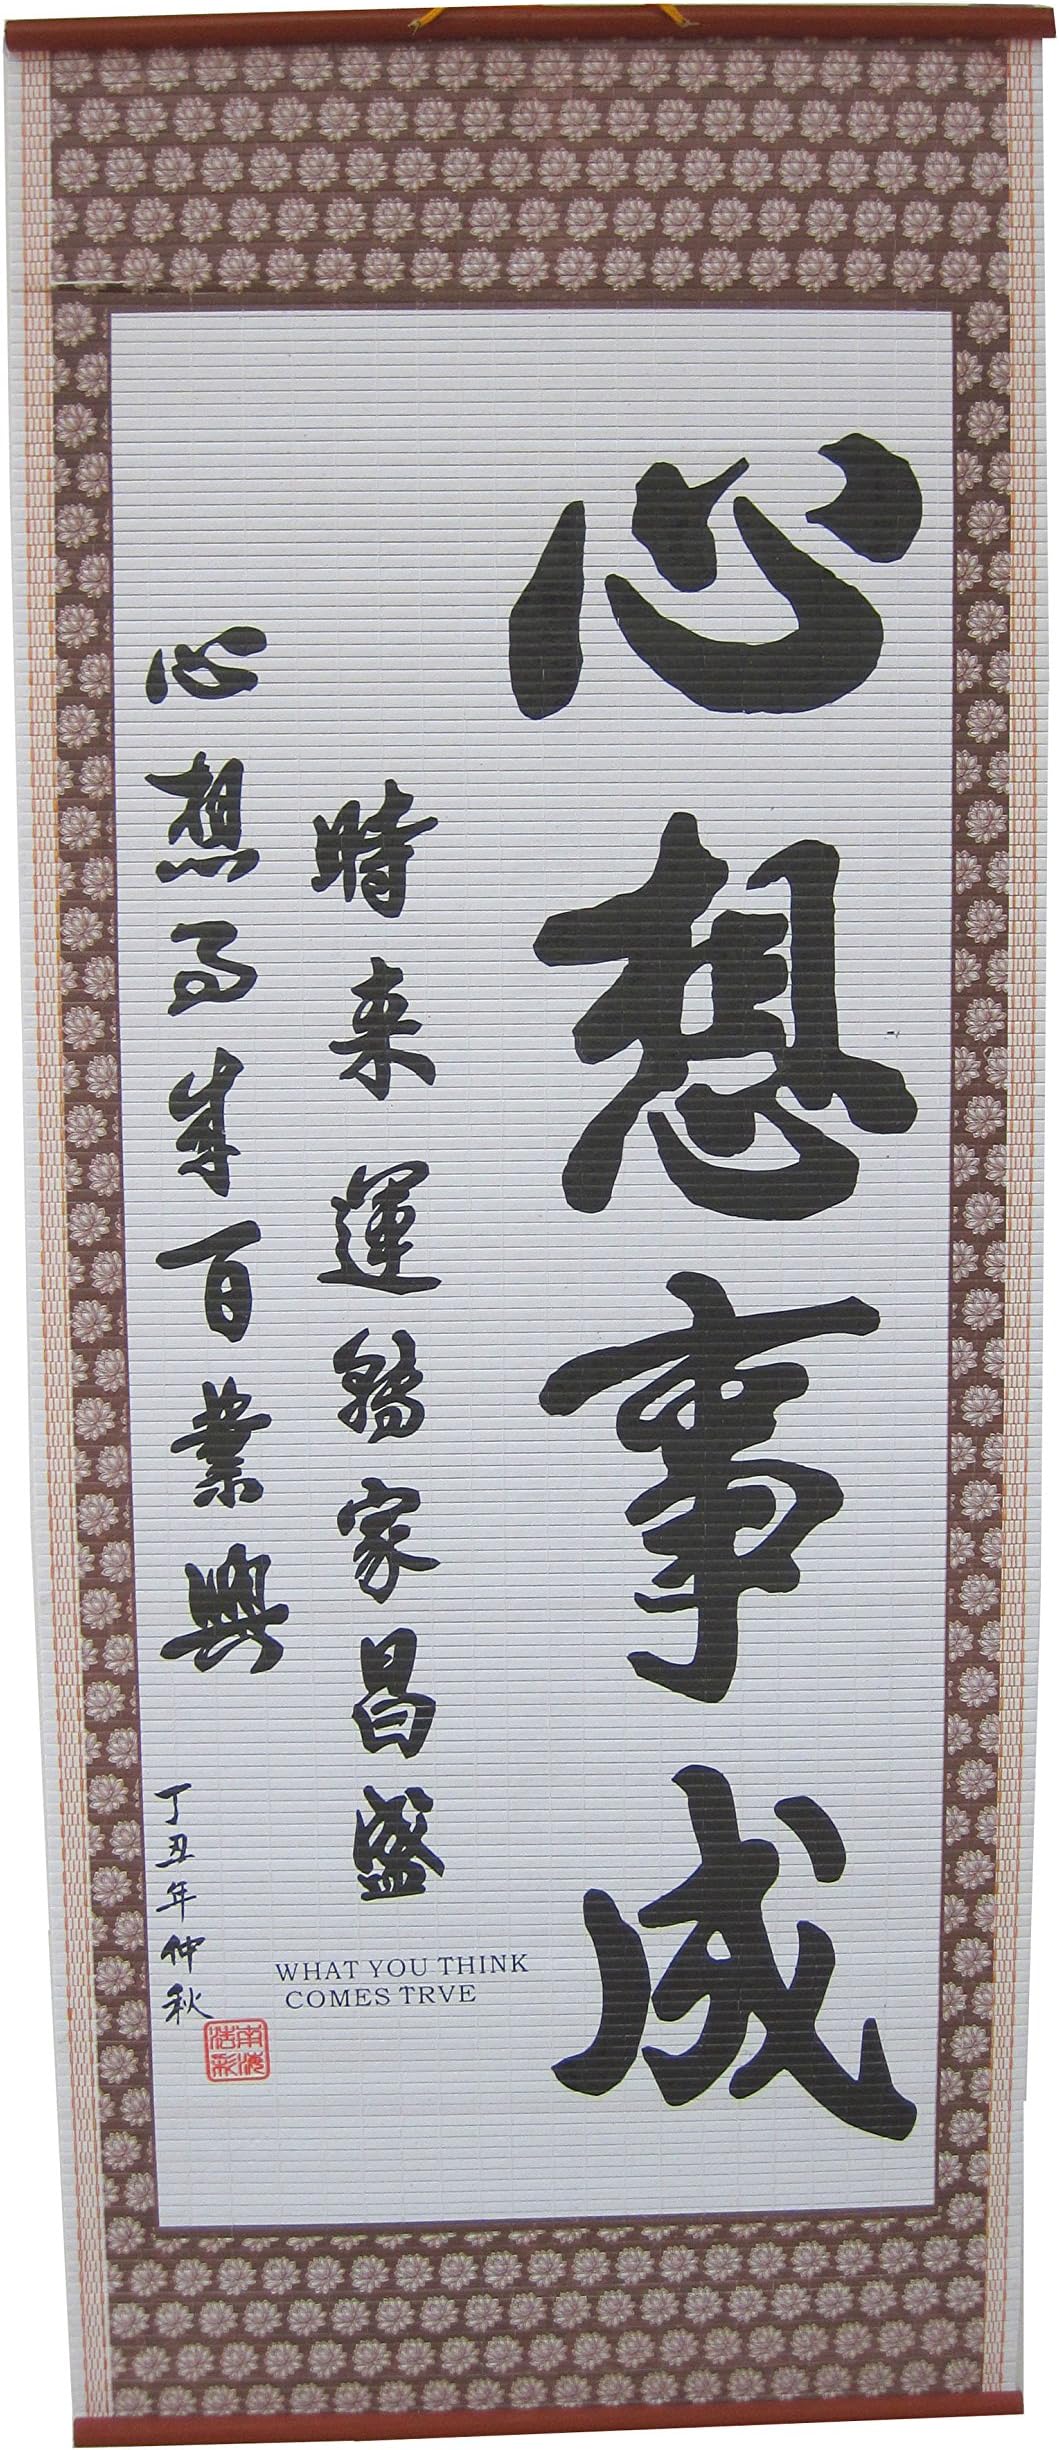 心想事成
時来運轉家昌盛
心想事成百業興
丁丑年仲秋
WHAT YOU THINK
COMES TRVE